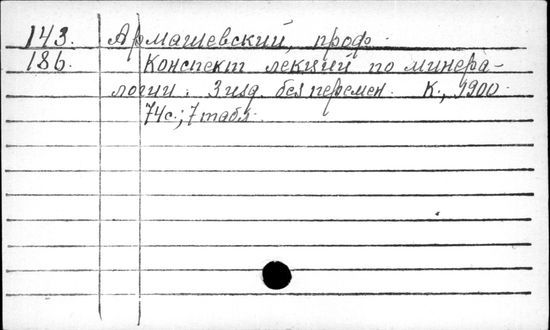 143. Армашевский, проф.
186. Конспект лекций по минера-
логии. 3 изд. без перемен. К., 1900.
74с.; 7 табл.